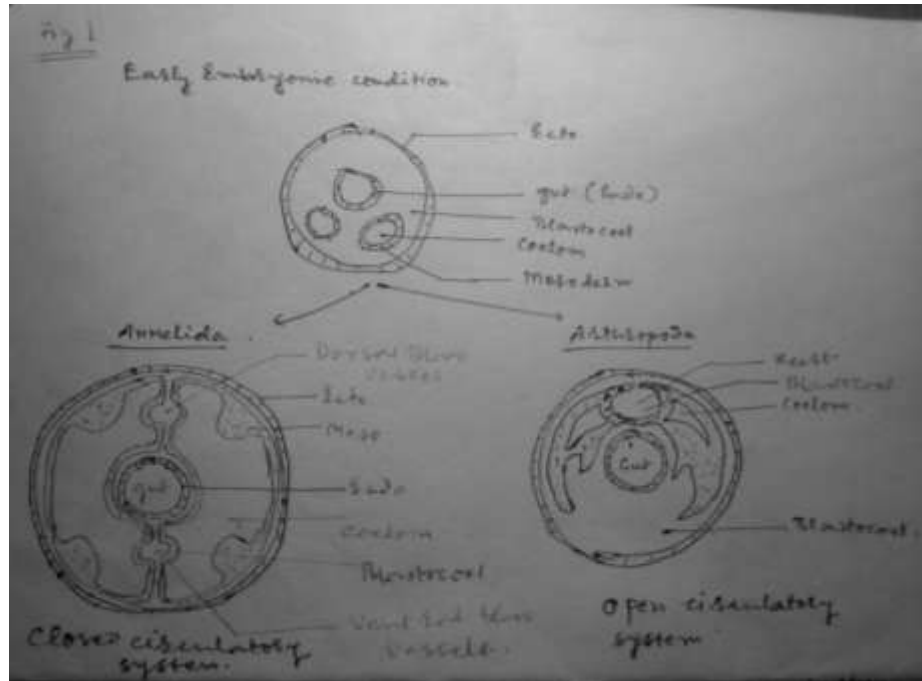 Fig 1
Early Embryonic condition
Ecto
gut (Endo)
Blastocoel
Coelom
Mesoderm
Annelida
Arthropoda
Dorsal Blood
vessel
Ecto
Meso
Endo
Coelom
Blastocoel
Ventral blood
vessels.
gut
Closed circulatory
system.
Heart
Blastocoel
Coelom
Gut
Blastocoel
Open circulatory
system